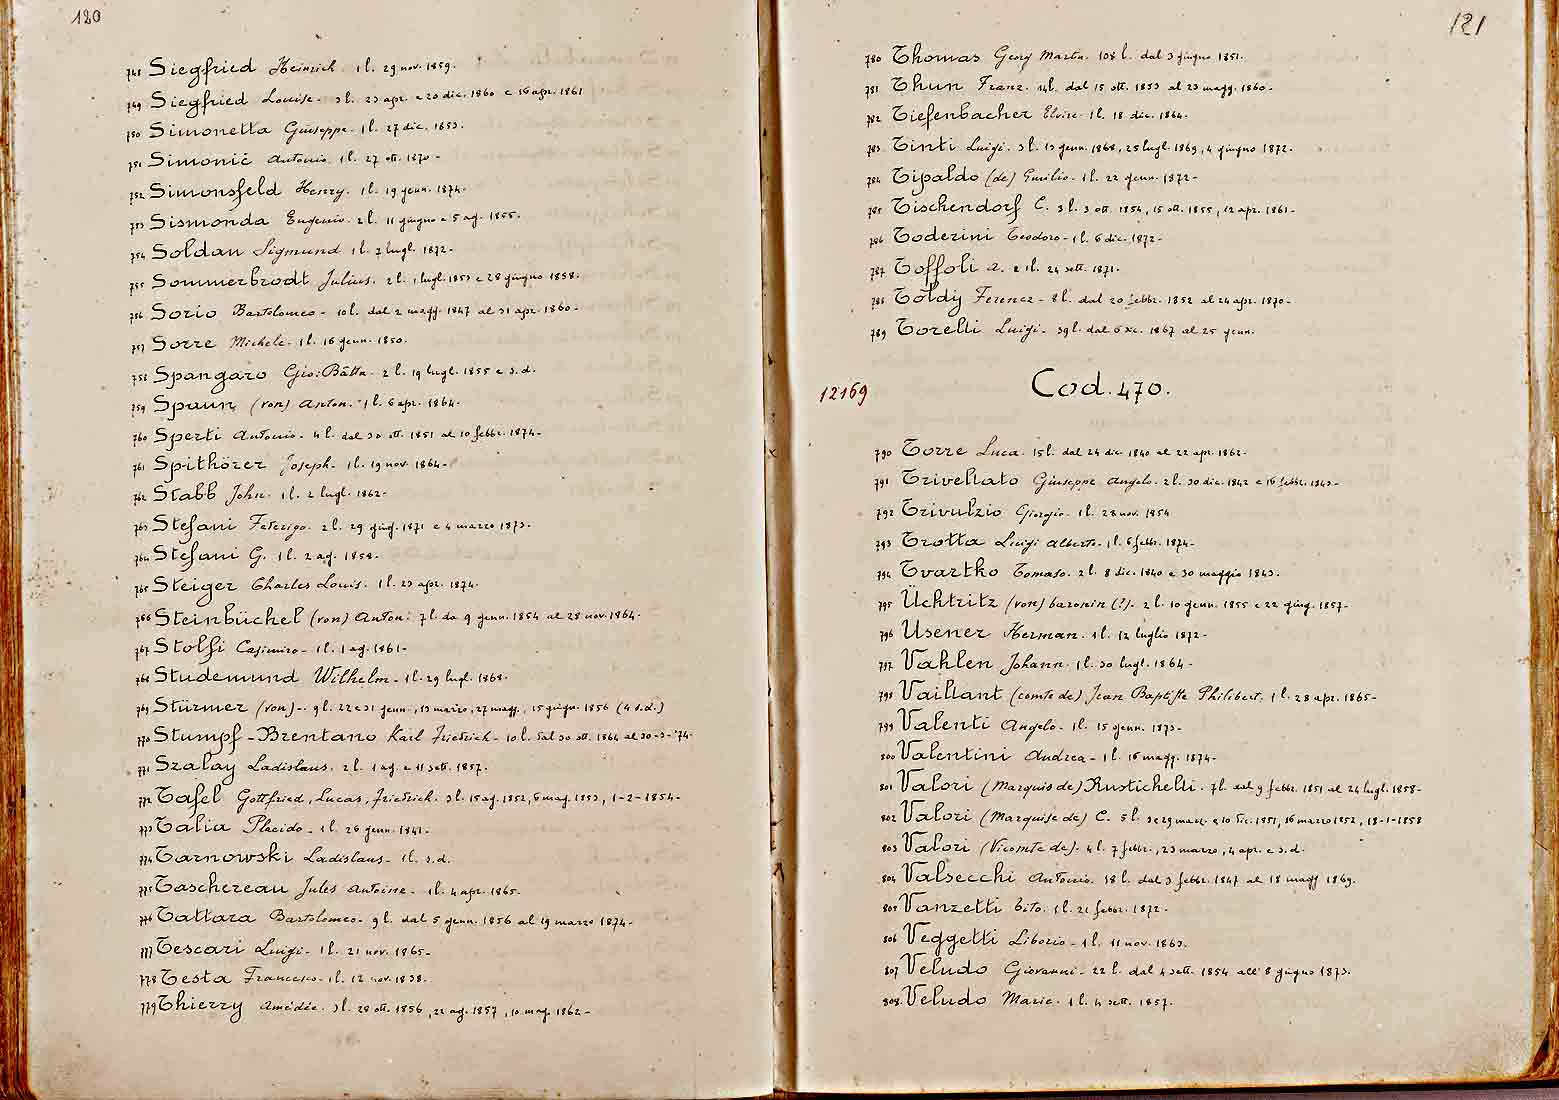 120
748 Siegfried Heinrich. 1 l. 29 nov. 1859.
749 Siegfried Louise. 3 l. 23 apr. e 20 dic. 1860 e 16 apr. 1861
750 Simonetta Giuseppe. 1 l. 27 dic. 1853.
751 Simonić Antonio. 1 l. 27 ott. 1870.
752 Simonsfeld Henry. 1 l. 19 genn. 1874.
753 Sismonda Eugenio. 2 l. 11 giugno e 5 ag. 1855.
754 Soldan Sigmund 1 l. 7 lugl. 1872.
755 Sommerbrodt Julius. 2 l. 1 lugl. 1853 e 28 giugno 1858.
756 Sorio Bartolomeo. 10 l. dal 2 magg. 1847 al 31 apr. 1860.
757 Sorre Michele. 1 l. 16 genn. 1850.
758 Spangaro Gio: Bãtta. 2 l. 19 lugl. 1855 e s.d.
759 Spaun (von) Anton. 1 l. 6 apr. 1864.
760 Sperti Antonio. 4 l. dal 30 ott. 1851 al 10 febbr. 1874.
761 Spithörer Joseph. 1 l. 19 nov. 1864.
762 Stabb John. 1 l. 2 lugl. 1862.
763 Stefani Federigo. 2 l. 29 giug. 1871 e 4 marzo 1873.
764 Stefani G. 1 l. 2 ag. 1858.
765 Steiger Charles Louis. 1 l. 23 apr. 1874.
766 Steinbüchel (von) Anton. 7 l. da 9 genn. 1854 al 28 nov. 1864.
767 Stolfi Casimiro. 1 l. 1 ag. 1861.
768 Studemund Wilhelm. 1 l. 29 lugl. 1868.
769 Stürmer (von). 9 l. 22 e 31 genn., 13 marzo, 27 magg., 15 giugn. 1856 (4 s.d.)
770 Stumpf-Brentano Karl Friedrich. 10 l. dal 30 ott. 1864 al 30-3-'74.
771 Szalay Ladislaus. 2 l. 1 ag. e 11 sett. 1857.
772 Tafel Gottfried, Lucas, Friedrich. 3 l. 15 ag. 1852, 6 mag. 1853, 1-2-1854.
773 Talia Placido. 1 l. 26 genn. 1841.
774 Tarnowski Ladislaus. 1 l. s.d.
775 Taschereau Jules Antoine. 1 l. 4 apr. 1865.
776 Tattara Bartolomeo. 9 l. dal 5 genn. 1856 al 19 marzo 1874.
777 Tescari Luigi. 1 l. 21 nov. 1865.
778 Testa Francesco. 1 l. 12 nov. 1838.
779 Thierry Amédée. 3 l. 28 ott. 1856, 22 ag. 1857, 10 mag. 1862.
121
780 Thomas Georg Martin. 108 l. dal 3 giugno 1851.
781 Thun Franz. 14 l. dal 15 ott. 1853 al 23 magg. 1860.
782 Tiefenbacher Elvise. 1 l. 18 dic. 1864.
783 Tinti Luigi. 3 l. 13 genn. 1868, 25 lugl. 1869, 4 giugno 1872.
784 Tipaldo (de) Emilio. 1 l. 22 genn. 1872.
785 Tischendorf C. 3 l. 3 ott. 1854, 15 ott. 1855, 12 apr. 1861.
786 Toderini Teodoro. 1 l. 6 dic. 1872.
787 Toffoli A. 1 l. 24 sett. 1871.
788 Toldy Ferencz. 8 l. dal 20 febbr. 1852 al 24 apr. 1870.
789 Torelli Luigi. 39 l. dal 6 xc. 1867 al 25 genn.
12169 Cod. 470.
790 Torre Luca. 15 l. dal 24 dic. 1840 al 22 apr. 1862.
791 Trivellato Giuseppe Angelo. 2 l. 30 dic. 1842 e 16 febbr. 1843.
792 Trivulzio Giorgio. 1 l. 28 nov. 1854
793 Trotta Luigi Alberto. 1 l. 6 febbr. 1874.
794 Tvartko Tomaso. 2 l. 8 dic. 1840 e 30 maggio 1843.
795 Üchtritz (von) baronin (?). 2 l. 10 genn. 1855 e 22 giug. 1857.
796 Usener Herman. 1 l. 12 luglio 1872.
797 Vahlen Johann. 1 l. 30 lugl. 1864.
798 Vaillant (comte de) Jean Baptiste Philibert. 1 l. 28 apr. 1865.
799 Valenti Angelo. 1 l. 15 genn. 1873.
800 Valentini Andrea. 1 l. 16 magg. 1874.
801 Valori (Marquis de) Rustichelli. 7 l. dal 9 febbr. 1851 al 24 lugl. 1858.
802 Valori (Marquise de) C. 5 l. 3 e 29 marz. e 10 dic. 1851, 16 marzo 1852, 18-1-1858
803 Valori (Vicomte de). 4 l. 7 febbr., 23 marzo, 4 apr. e s.d.
804 Valsecchi Antonio. 18 l. dal 3 febbr. 1847 al 18 magg. 1869.
805 Vanzetti Tito. 1 l. 21 febbr. 1872.
806 Veggetti Liborio. 1 l. 11 nov. 1863.
807 Veludo Giovanni. 22 l. dal 4 sett. 1854 all' 8 giugno 1873.
808 Veludo Marie. 1 l. 4 sett. 1857.